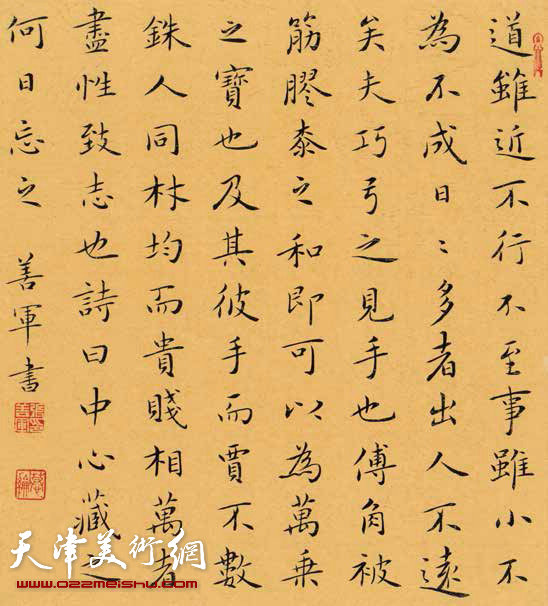 道雖近不行不至事雖小不
為不成日〻多者出人不遠
矣夫巧弓之見手也傅角被
筋膠桼之和即可以為萬乗
之寶也及其彼手而賈不數
銖人同材均而貴賤相萬者
盡性致志也詩曰中心藏之
何日忘之 善軍書
天津美術網
www.022meishu.com